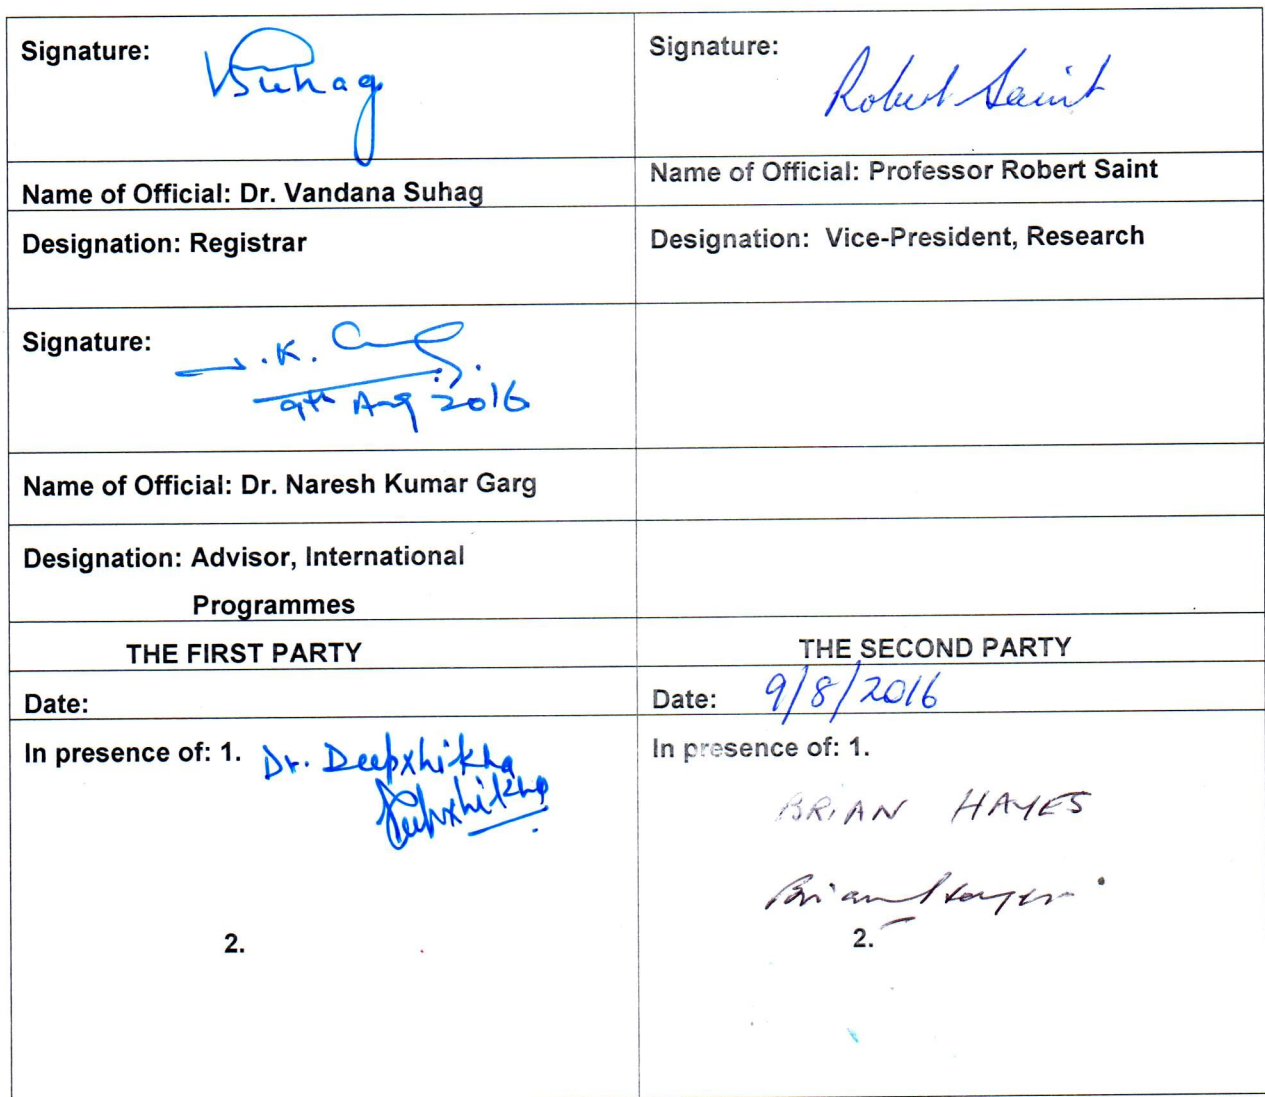 Signature:
VSuhag
Signature:
Robert Saint
Name of Official: Dr. Vandana Suhag
Name of Official: Professor Robert Saint
Designation: Registrar
Designation: Vice-President, Research
Signature:
N.K. Garg
9th Aug 2016
Name of Official: Dr. Naresh Kumar Garg
Designation: Advisor, International
Programmes
THE FIRST PARTY
THE SECOND PARTY
Date:
Date: 9/8/2016
In presence of: 1. Dr. Deepshikha
Deepshikha
2.
In presence of: 1.
BRIAN HAYES
Brian Hayes
2.